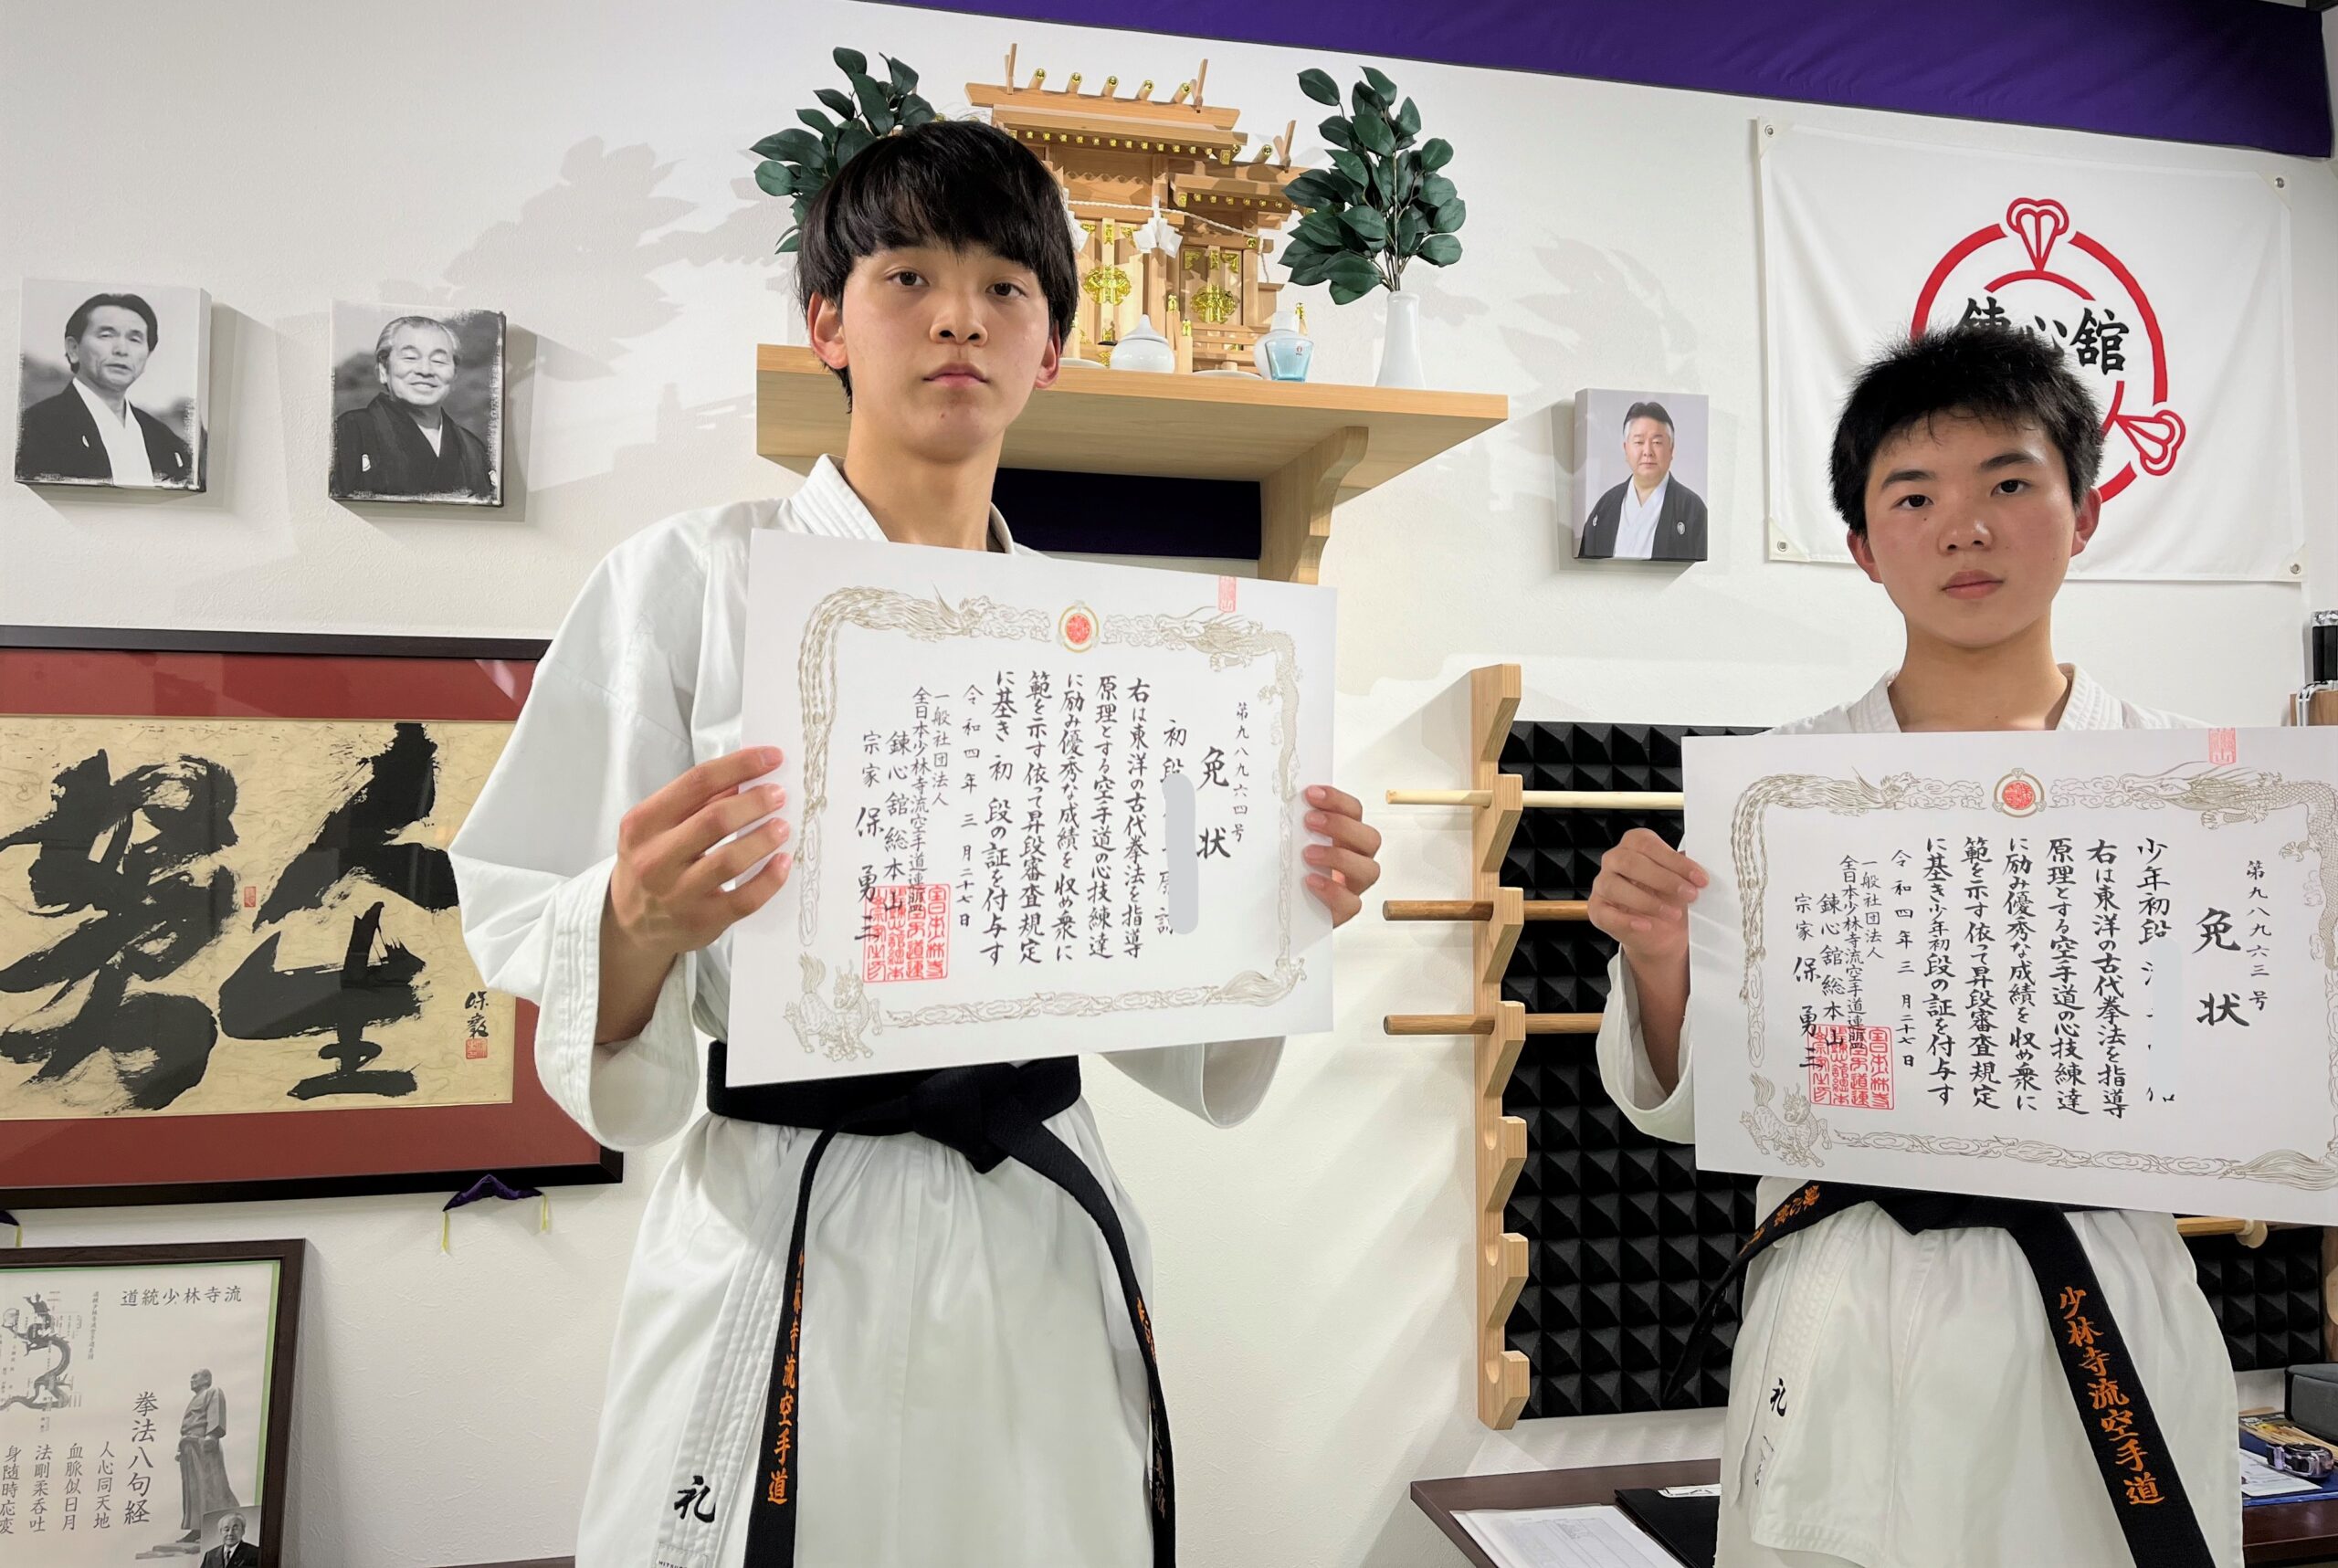 錬心舘
人生
努
保勇
第九八九六四号
免状
初段
右は東洋の古代拳法を指導
原理とする空手道の心技練達
に励み優秀な成績を収め衆に
範を示す依って昇段審査規定
に基き初段の証を付与す
令和四年三月二十七日
一般社団法人
全日本少林寺流空手道連盟
錬心舘総本山
宗家 保勇三
第九八九六三号
免状
少年初段
右は東洋の古代拳法を指導
原理とする空手道の心技練達
に励み優秀な成績を収め衆に
範を示す依って昇段審査規定
に基き少年初段の証を付与す
令和四年三月二十七日
一般社団法人
全日本少林寺流空手道連盟
錬心舘総本山
宗家 保勇三
道統少林寺流
拳法八句経
人心同天地
血脈似日月
法剛柔呑吐
身随時応変
少林寺流空手道
礼
少林寺流空手道
礼